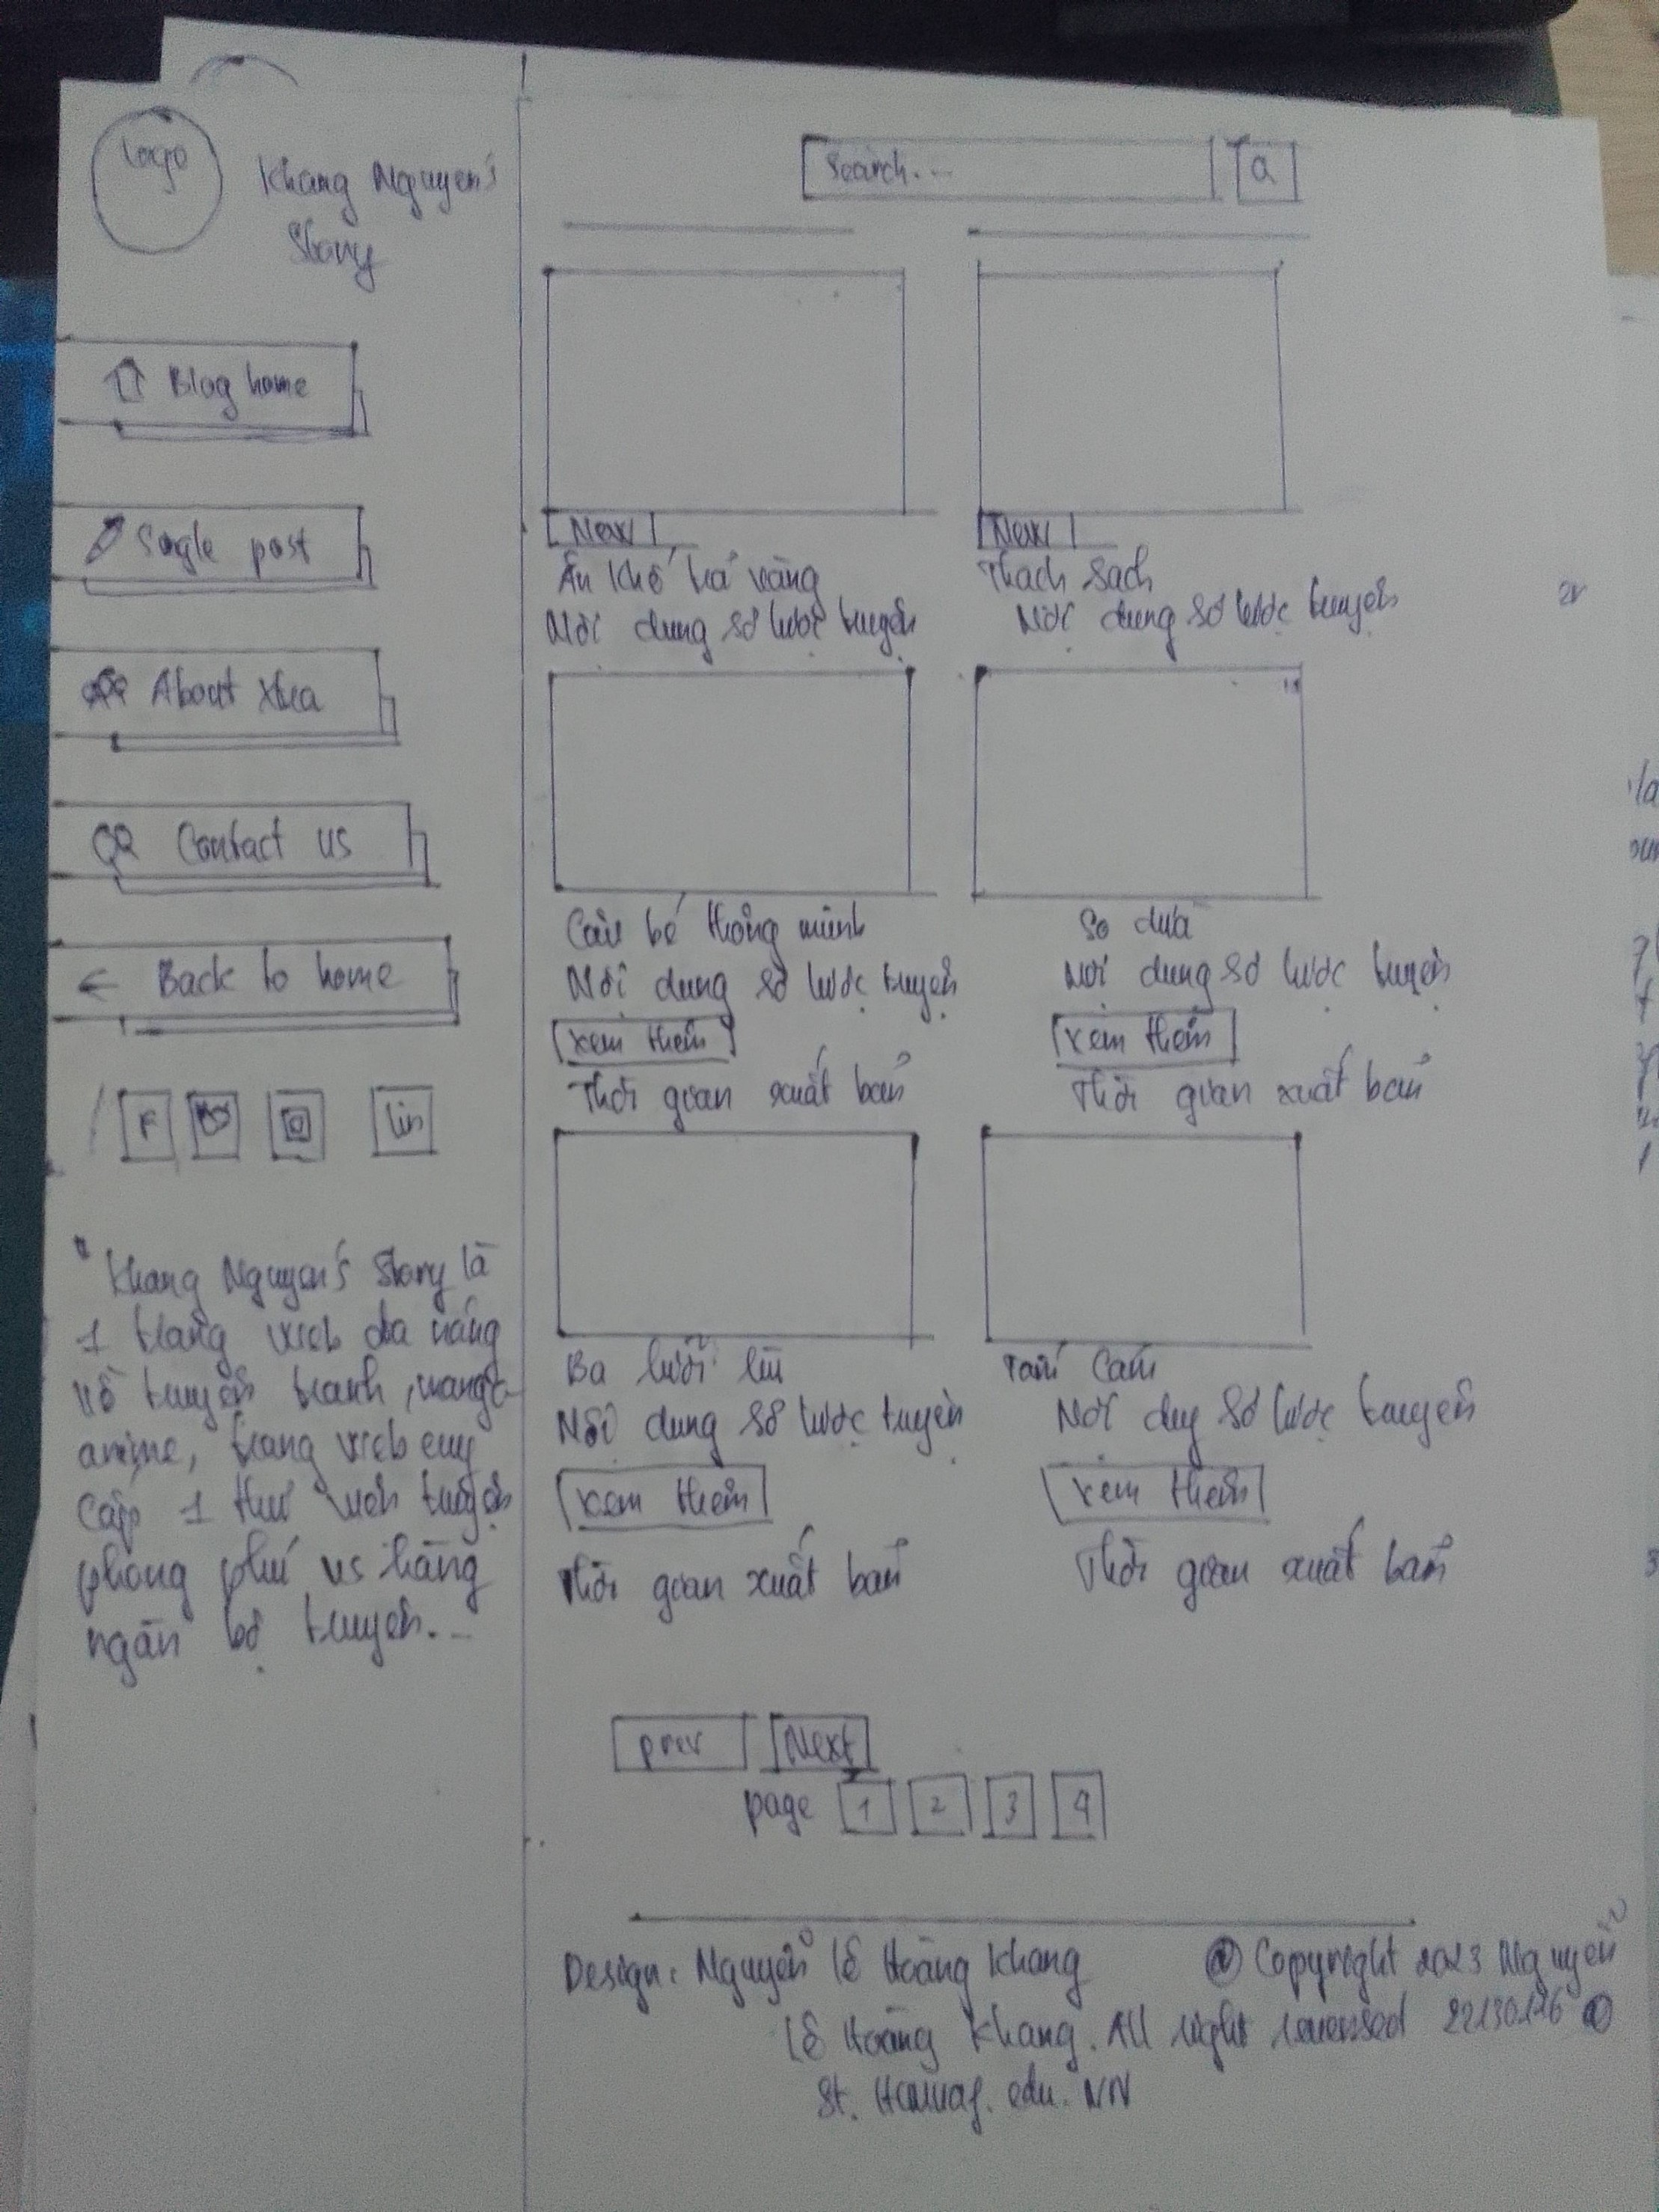 Logo
Khang Nguyen's
Story
Blog home
Single post
About Xtra
Contact us
← Back to home
F
Lin
"Khang Nguyen's Story là
1 trang web đa năng
về truyện tranh, manga
anime, trang web cung
cấp 1 thư viện truyện
phong phú vs hàng
ngàn bộ truyện...
Search...
Q
New
Ăn khế trả vàng
Nội dung sơ lược truyện
New
Thạch Sach
Nội dung sơ lược truyện
Cậu bé thông minh
Nội dung sơ lược truyện
Xem thêm
Thời gian xuất bản
Sọ dừa
Nội dung sơ lược truyện
Xem thêm
Thời gian xuất bản
Ba lưỡi rìu
Nội dung sơ lược truyện
Xem thêm
Thời gian xuất bản
Tấm Cám
Nội dug sơ lược truyện
Xem thêm
Thời gian xuất bản
prev Next
page 1 2 3 4
Design: Nguyễn Lê Hoàng Khang @ Copyright 2023 Nguyễn
Lê Hoàng Khang. All right reversed @
St. edu. VN